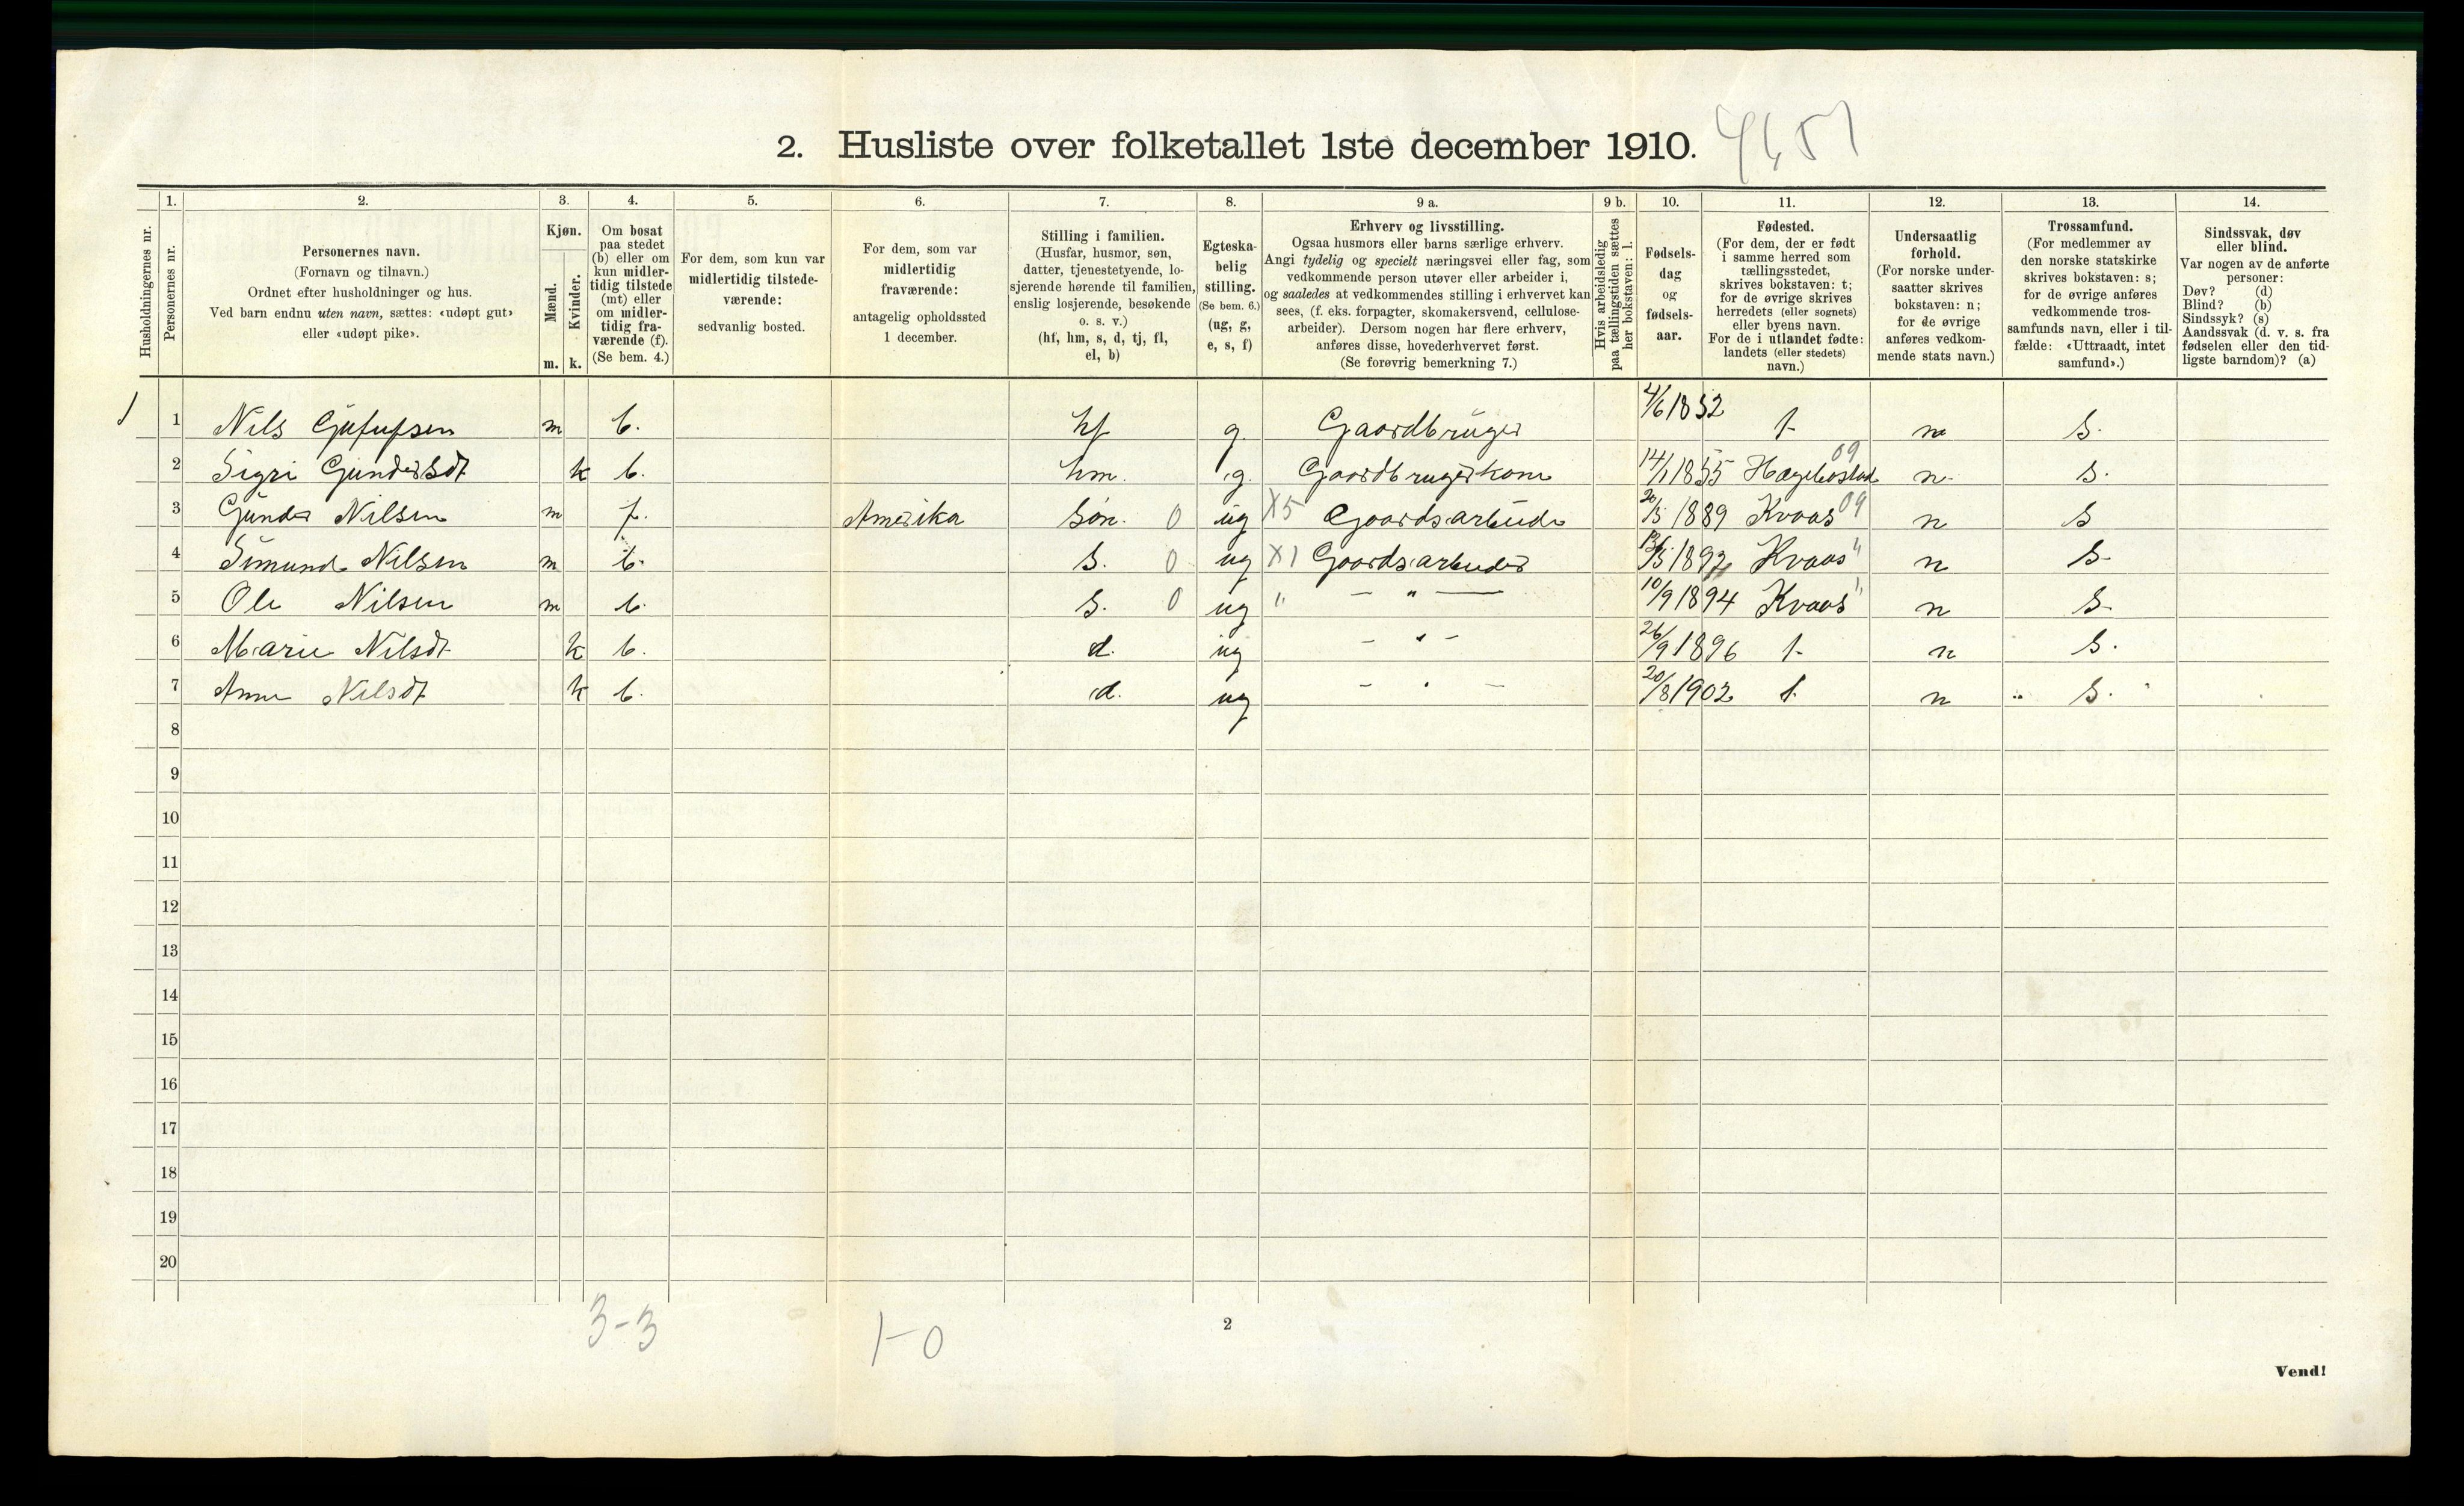 2. Husliste over folketallet 1ste december 1910.
Husholdningernes nr.
1.
Personernes nr.
2.
Personernes navn.
(Fornavn og tilnavn.)
Ordnet efter husholdninger og hus.
Ved barn endnu uten navn, sættes: «udøpt gut»
eller «udøpt pike».
3.
Kjøn.
Mænd.
m.
Kvinder.
k.
4.
Om bosat
paa stedet
(b) eller om
kun midler-
tidig tilstede
(mt) eller
om midler-
tidig fra-
værende (f).
(Se bem. 4.)
5.
For dem, som kun var
midlertidig tilstede-
værende:
sedvanlig bosted.
6.
For dem, som var
midlertidig
fraværende:
antagelig opholdssted
1 december.
7.
Stilling i familien.
(Husfar, husmor, søn,
datter, tjenestetyende, lo-
sjerende hørende til familien,
enslig losjerende, besøkende
o. s. v.)
(hf, hm, s, d, tj, fl,
el, b)
8.
Egteska-
belig
stilling.
(Se bem. 6.)
(ug, g,
e, s, f)
9 a.
Erhverv og livsstilling.
Ogsaa husmors eller barns særlige erhverv.
Angi tydelig og specielt næringsvei eller fag, som
vedkommende person utøver eller arbeider i,
og saaledes at vedkommendes stilling i erhvervet kan
sees, (f. eks. forpagter, skomakersvend, cellulose-
arbeider). Dersom nogen har flere erhverv,
anføres disse, hovederhvervet først.
(Se forøvrig bemerkning 7.)
9 b.
Hvis arbeidsledig
paa tællingstiden sættes
her bokstaven: l.
10.
Fødsels-
dag
og
fødsels-
aar.
11.
Fødested.
(For dem, der er født
i samme herred som
tællingsstedet,
skrives bokstaven: t;
for de øvrige skrives
herredets (eller sognets)
eller byens navn.
For de i utlandet fødte:
landets (eller stedets)
navn.)
12.
Undersaatlig
forhold.
(For norske under-
saatter skrives
bokstaven: n;
for de øvrige
anføres vedkom-
mende stats navn.)
13.
Trossamfund.
(For medlemmer av
den norske statskirke
skrives bokstaven: s;
for de øvrige anføres
vedkommende tros-
samfunds navn, eller i til-
fælde: «Uttraadt, intet
samfund».)
14.
Sindssvak, døv
eller blind.
Var nogen av de anførte
personer:
Døv? (d)
Blind? (b)
Sindssyk? (s)
Aandssvak (d. v. s. fra
fødselen eller den tid-
ligste barndom)? (a)
1 1 Nils m b. hf g. Gaardbruger 4/6 1852 t n s.
2 Sigri Gundersdt k b. hm. g. Gaardbrugerkone 14/1 1855 Hægebostad 09 n. s.
3 Gunder Nilsen m f. Amerika Søn. 0 ug X5 Gaardsarbeider 1889 Kvaas 09 n s
4 Simund Nilsen m b. s. 0 ug X1 Gaardsarbeider 1892 Kvaas " n s.
5 Ole Nilsen m b. s. 0 ug " — " — 10/9 1894 Kvaas " n s.
6 Marie Nilsdt k b. d. ug — " — 26/9 1896 t n s.
7 Anne Nilsdt k b. d. ug — " — 20/8 1902 t n s.
8
9
10
11
12
13
14
15
16
17
18
19
20
3-3
1-0
2
Vend!